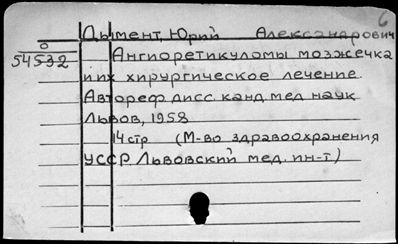 6
Дымент, Юрий Александрович
0
54532 Ангиоретикуломы мозжечка
и их хирургическое лечение.
Автореф. дисс. канд. мед. наук
Львов, 1958
14 стр (М-во здравоохранения
УССР Львовский мед. ин-т.)